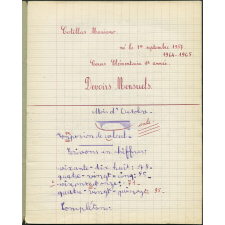 né le 1er septembre 1957
1964-1965
Cours Elémentaire 1e année.
Devoirs Mensuels.
Mois d'Octobre
Ecrivons en chiffres:
soixante-dix-huit: 78.
quatre-vingt-cinq: 85.
soixante et onze: 71.
quatre-vingt-quinze: 95.
Complétons: